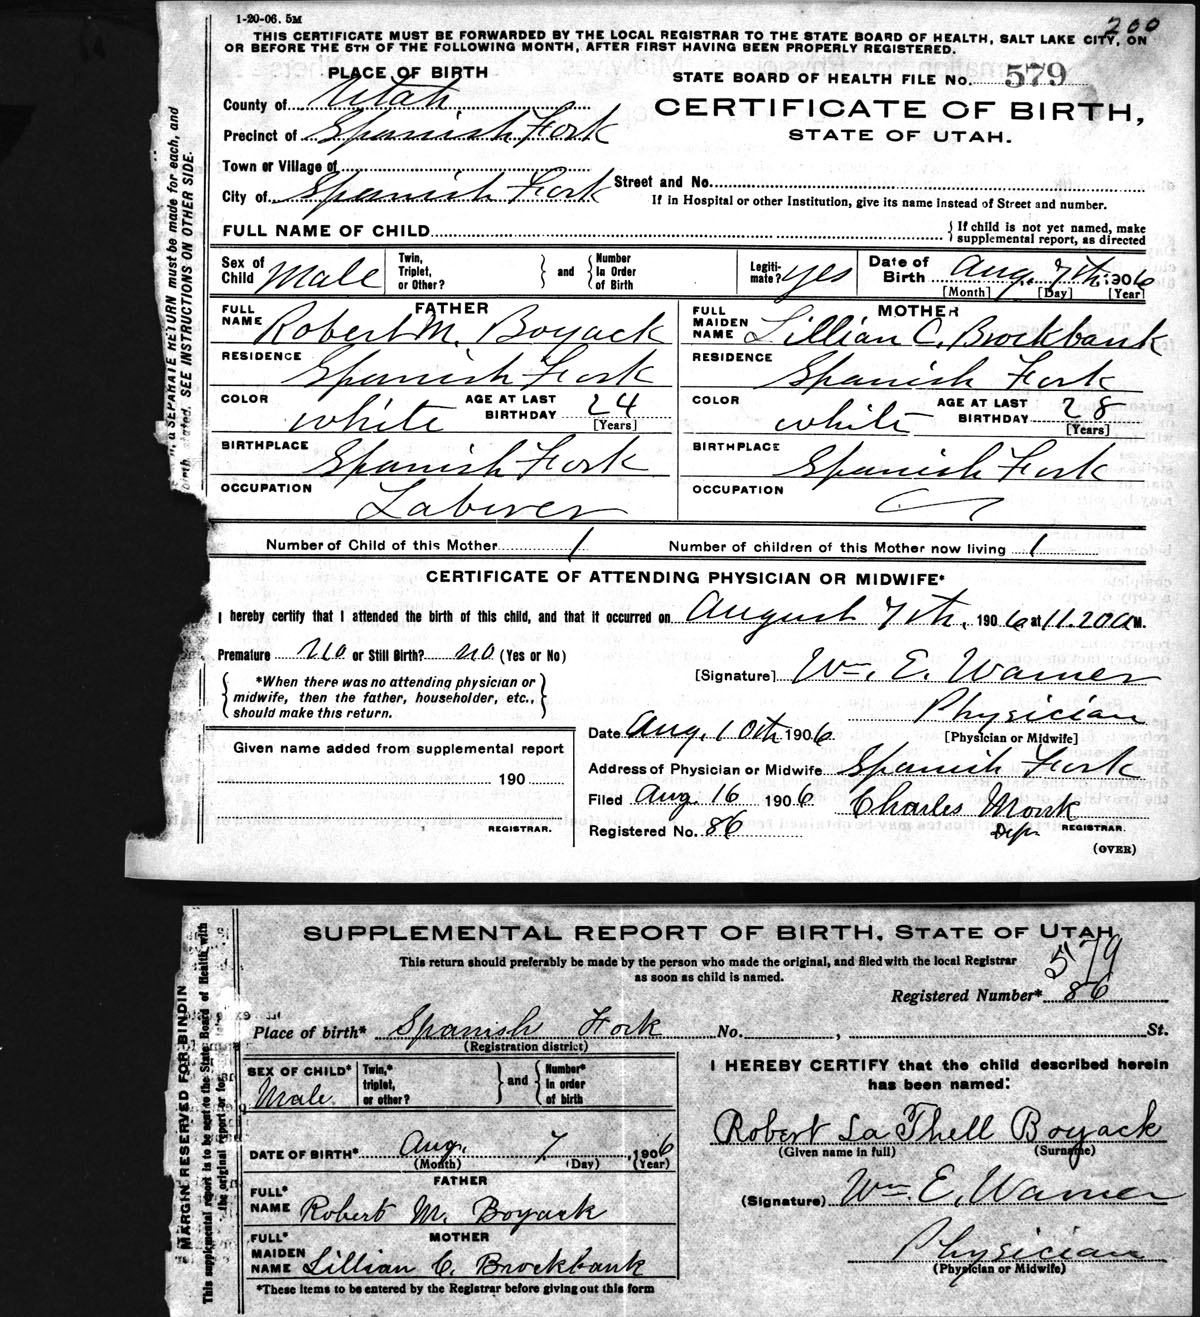 1-20-06. 5M
200
THIS CERTIFICATE MUST BE FORWARDED BY THE LOCAL REGISTRAR TO THE STATE BOARD OF HEALTH, SALT LAKE CITY, ON
OR BEFORE THE 5TH OF THE FOLLOWING MONTH, AFTER FIRST HAVING BEEN PROPERLY REGISTERED.
PLACE OF BIRTH
STATE BOARD OF HEALTH FILE No. 579
County of Utah
CERTIFICATE OF BIRTH,
Precinct of Spanish Fork
STATE OF UTAH.
Town or Village of
City of Spanish Fork
Street and No.
If in Hospital or other Institution, give its name instead of Street and number.
FULL NAME OF CHILD
{ If child is not yet named, make
supplemental report, as directed
a SEPARATE RETURN must be made for each, and
stated. SEE INSTRUCTIONS ON OTHER SIDE.
Sex of Child Male
Twin, Triplet, or Other? } and { Number In Order of Birth
Legiti-mate? yes
Date of Birth Aug. 7th. 1906
[Month] [Day] [Year]
FATHER
FULL NAME Robert M. Boyack
MOTHER
FULL MAIDEN NAME Lillian C. Brockbank
RESIDENCE Spanish Fork
RESIDENCE Spanish Fork
COLOR white AGE AT LAST BIRTHDAY 24 [Years]
COLOR white AGE AT LAST BIRTHDAY 28 [Years]
BIRTHPLACE Spanish Fork
BIRTHPLACE Spanish Fork
OCCUPATION Laborer
OCCUPATION
Number of Child of this Mother 1 Number of children of this Mother now living 1
CERTIFICATE OF ATTENDING PHYSICIAN OR MIDWIFE*
I hereby certify that I attended the birth of this child, and that it occurred on August 7th. 1906 at 11.20 a M.
Premature No or Still Birth? no (Yes or No)
[Signature] Wm. E. Warner
{ *When there was no attending physician or
midwife, then the father, householder, etc.,
should make this return. }
Physician
[Physician or Midwife]
Date Aug. 10th 1906.
Given name added from supplemental report
190
REGISTRAR.
Address of Physician or Midwife Spanish Fork
Filed Aug. 16 1906 Charles Monk
Registered No. 86 Depu REGISTRAR.
(OVER)
SUPPLEMENTAL REPORT OF BIRTH, STATE OF UTAH
This return should preferably be made by the person who made the original, and filed with the local Registrar
as soon as child is named.
579
Registered Number* 86
Place of birth* Spanish Fork No. , St.
(Registration district)
MARGIN RESERVED FOR BINDIN
This supplemental report is to be sent to the State Board of Health, with
the original report or for
SEX OF CHILD* Male
Twin,* triplet, or other? } and { Number* in order of birth
DATE OF BIRTH* Aug. 7 , 1906
(Month) (Day) (Year)
FATHER
FULL* NAME Robert M. Boyack
MOTHER
FULL* MAIDEN NAME Lillian C. Brockbank
*These items to be entered by the Registrar before giving out this form
I HEREBY CERTIFY that the child described herein
has been named:
Robert La Thell Boyack
(Given name in full) (Surname)
(Signature) Wm E. Warner
Physician
(Physician or Midwife)